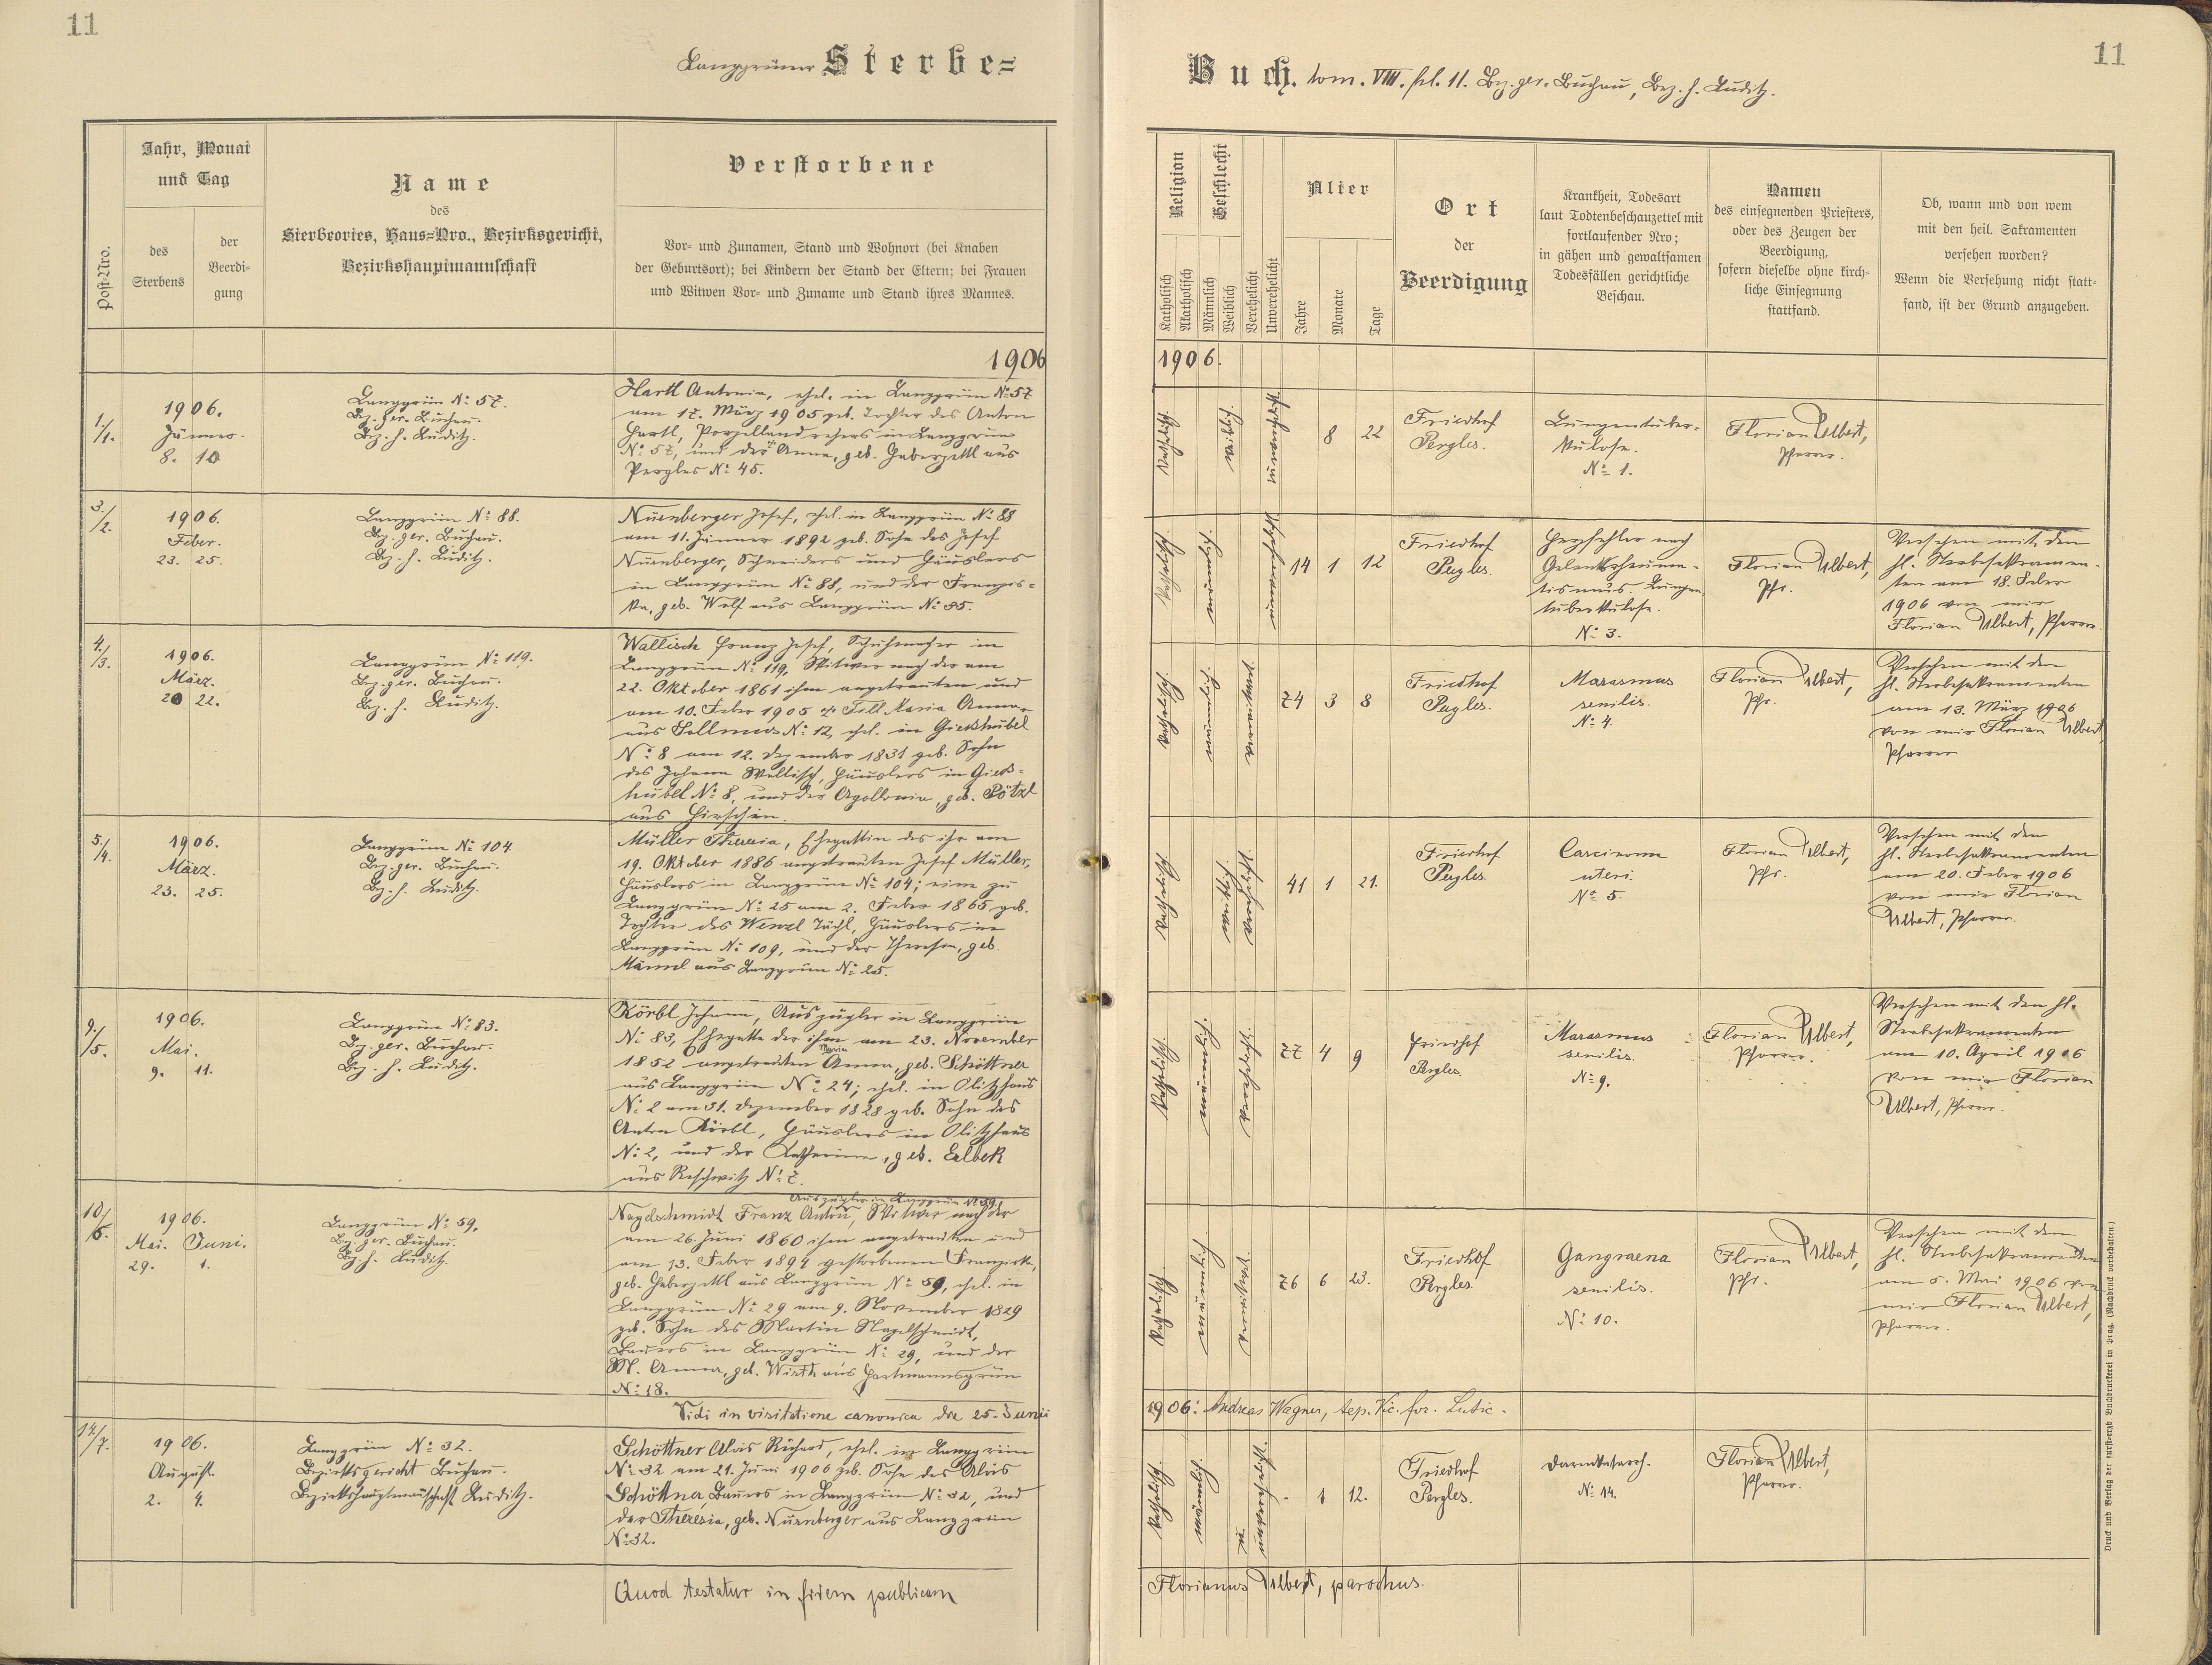 11
Langgrüner Sterbe=
Jahr, Monat
und Tag
Post-Nro.
des
Sterbens
der
Beerdi-
gung
Name
des
Sterbeortes, Haus=Nro., Bezirksgericht,
Bezirkshauptmannschaft
Verstorbene
Vor- und Zunamen, Stand und Wohnort (bei Knaben
der Geburtsort); bei Kindern der Stand der Eltern; bei Frauen
und Witwen Vor- und Zuname und Stand ihres Mannes.
1906
1./1.
1906.
Jänner.
8. 10
Langgrün No 57.
Bz. ger. Buchau.
Bz. h. Luditz.
Hartl Antonia, ehel. in Langgrün No 57
am 17. März 1905 geb. Tochter des Anton
Hartl, Porzellandrehers in Langgrün
No 57, und der Anna, geb. Haberzettl aus
Pergles No 45.
3./2.
1906.
Feber.
23. 25.
Langgrün No 88.
Bz. ger. Buchau.
Bz. h. Luditz.
Nürnberger Josef, ehel. in Langgrün No 88
am 11. Jänner 1892 geb. Sohn des Josef
Nürnberger, Schneiders und Häuslers
in Langgrün No 88, und der Franzis=
ka, geb. Wolf aus Langgrün No 35.
4./3.
1906.
März.
20 22.
Langgrün No 119.
Bz. ger. Buchau.
Bz. h. Luditz.
Wallisch Franz Josef, Schuhmacher in
Langgrün No 119, Witwer nach der am
22. Oktober 1861 ihm angetrauten und
am 10. Feber 1905 † Maria Anna
aus Sollmus No 12, ehel. in Gießhübel
No 8 am 12. Dezember 1831 geb. Sohn
des Johann Wallisch, Häuslers in Gieß=
hübel No 8, und der Apollonia, geb. Pötzl
aus Hirschen.
5./4.
1906.
März.
23. 25.
Langgrün No 104
Bz. ger. Buchau.
Bz. h. Luditz.
Müller Theresia, Ehegattin des ihr am
19. Oktober 1886 angetrauten Josef Müller,
Häuslers in Langgrün No 104; eine zu
Langgrün No 25 am 2. Feber 1865 geb.
Tochter des Wenzl Tächl, Häuslers in
Langgrün No 109, und der Theresia, geb.
Männl aus Langgrün No 25.
9./5.
1906.
Mai.
9. 11.
Langgrün No 83.
Bz. ger. Buchau.
Bz. h. Luditz.
Körbl Johann, Auszügler in Langgrün
No 83, Ehegatte der ihm am 23. November
1852 angetrauten Maria Anna, geb. Schöttner
aus Langgrün No 24; ehel. in Olitzhaus
No 2 am 31. Dezember 1828 geb. Sohn des
Anton Körbl, Häuslers in Olitzhaus
No 2, und der Katharina, geb. Erlbek
aus Reschwitz No 7.
10./6.
1906.
Mai. Juni.
29. 1.
Langgrün No 59.
Bz. ger. Buchau.
Bz. h. Luditz.
Auszügler in Langgrün No 59
Nagelschmidt Franz Anton, Witwer nach der
am 26. Juni 1860 ihm angetrauten und
am 13. Feber 1894 gestorbenen Franziska,
geb. Haberzettl aus Langgrün No 59, ehel. in
Langgrün No 29 am 9. November 1829
geb. Sohn des Martin Nagelschmidt,
Bauers in Langgrün No 29, und der
M. Anna, geb. Wirth aus Hartmannsgrün
No 18.
Vidi in visitatione canonica die 25. Junii
14./7.
1906.
August.
2. 4.
Langgrün No 32.
Bezirksgericht Buchau.
Bezirkshauptmannschaft Luditz.
Schöttner Alois Richard, ehel. in Langgrün
No 32 am 21. Juni 1906 geb. Sohn des Alois
Schöttner, Bauers in Langgrün No 32, und
der Theresia, geb. Nürnberger aus Langgrün
No 32.
Quod testatur in fidem publicam
11
Buch. tom. VIII. fol. 11. Bez. ger. Buchau, Bez. h. Luditz.
Religion
Geschlecht
Katholisch
Akatholisch
Männlich
Weiblich
Verehelicht
Unverehelicht
Alter
Jahre
Monate
Tage
Ort
der
Beerdigung
Krankheit, Todesart
laut Todtenbeschauzettel mit
fortlaufender Nro;
in gähen und gewaltsamen
Todesfällen gerichtliche
Beschau.
Namen
des einsegnenden Priesters,
oder des Zeugen der
Beerdigung,
sofern dieselbe ohne kirch-
liche Einsegnung
stattfand.
Ob, wann und von wem
mit den heil. Sakramenten
versehen worden?
Wenn die Versehung nicht statt-
fand, ist der Grund anzugeben.
1906.
katholisch
weiblich
8 22
Friedhof
Pergles.
Lungentuber-
kulose.
No 1.
Florian Ulbert,
Pfarrer.
katholisch
männlich
14 1 12
Friedhof
Pergles.
Herzfehler nach
Gelenksrheuma-
tismus. Lungen
tuberkulose.
No 3.
Florian Ulbert,
Pfr.
Versehen mit den
hl. Sterbesakramen-
ten am 18. Feber
1906 von mir
Florian Ulbert, Pfarrer.
katholisch
männlich
verwitwet
74 3 8
Friedhof
Pergles.
Marasmus
senilis.
No 4.
Florian Ulbert,
Pfr.
Versehen mit den
hl. Sterbesakramenten
am 13. März 1906
von mir Florian Ulbert,
Pfarrer
katholisch
weiblich
verehelicht
41 1 21.
Friedhof
Pergles
Carcinoma
uteri.
No 5.
Florian Ulbert,
Pfr.
Versehen mit den
hl. Sterbesakramenten
am 20. Feber 1906
von mir Florian
Ulbert, Pfarrer.
katholisch
männlich
verehelicht
77 4 9
Friedhof
Pergles.
Marasmus
senilis.
No 9.
Florian Ulbert,
Pfarrer.
Versehen mit den hl.
Sterbesakramenten
am 10. April 1906
von mir Florian
Ulbert, Pfarrer.
katholisch
männlich
verwitwet
76 6 23.
Friedhof
Pergles.
Gangraena
senilis.
No 10.
Florian Ulbert,
Pfr.
Versehen mit den
hl. Sterbesakramenten
am 5. Mai 1906 von
mir Florian Ulbert,
Pfarrer.
1906: Andreas Wagner, Vic. for. Lutic.
katholisch
männlich
unverehelicht
. 1 12.
Friedhof
Pergles.
Darmkatarrh.
No 14.
Florian Ulbert,
Pfarrer.
Florianus Ulbert, parochus.
Druck und Verlag der fürst-erzb. Buchdruckerei in Prag. (Nachdruck vorbehalten.)